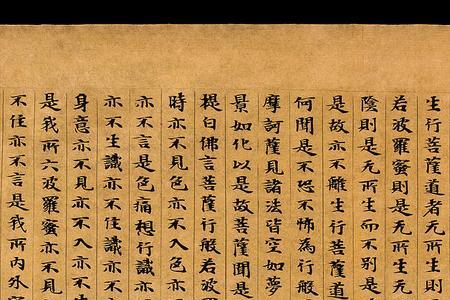 生行菩薩道者无所生則
若波羅蜜則是无所生无
陰則是无所生而不別是
是故亦不離生行菩薩道
何聞是不恐不怖為行般
摩訶薩見諸法皆空如夢
景如化以是故菩薩聞是
提白佛言菩薩行般若波
時亦不見色亦不入色亦
亦不言是色痛想行識亦
亦不生識亦不住識亦不
身意亦不見亦不入亦不
是我所六波羅蜜亦不見
不住亦不言是我所内外空